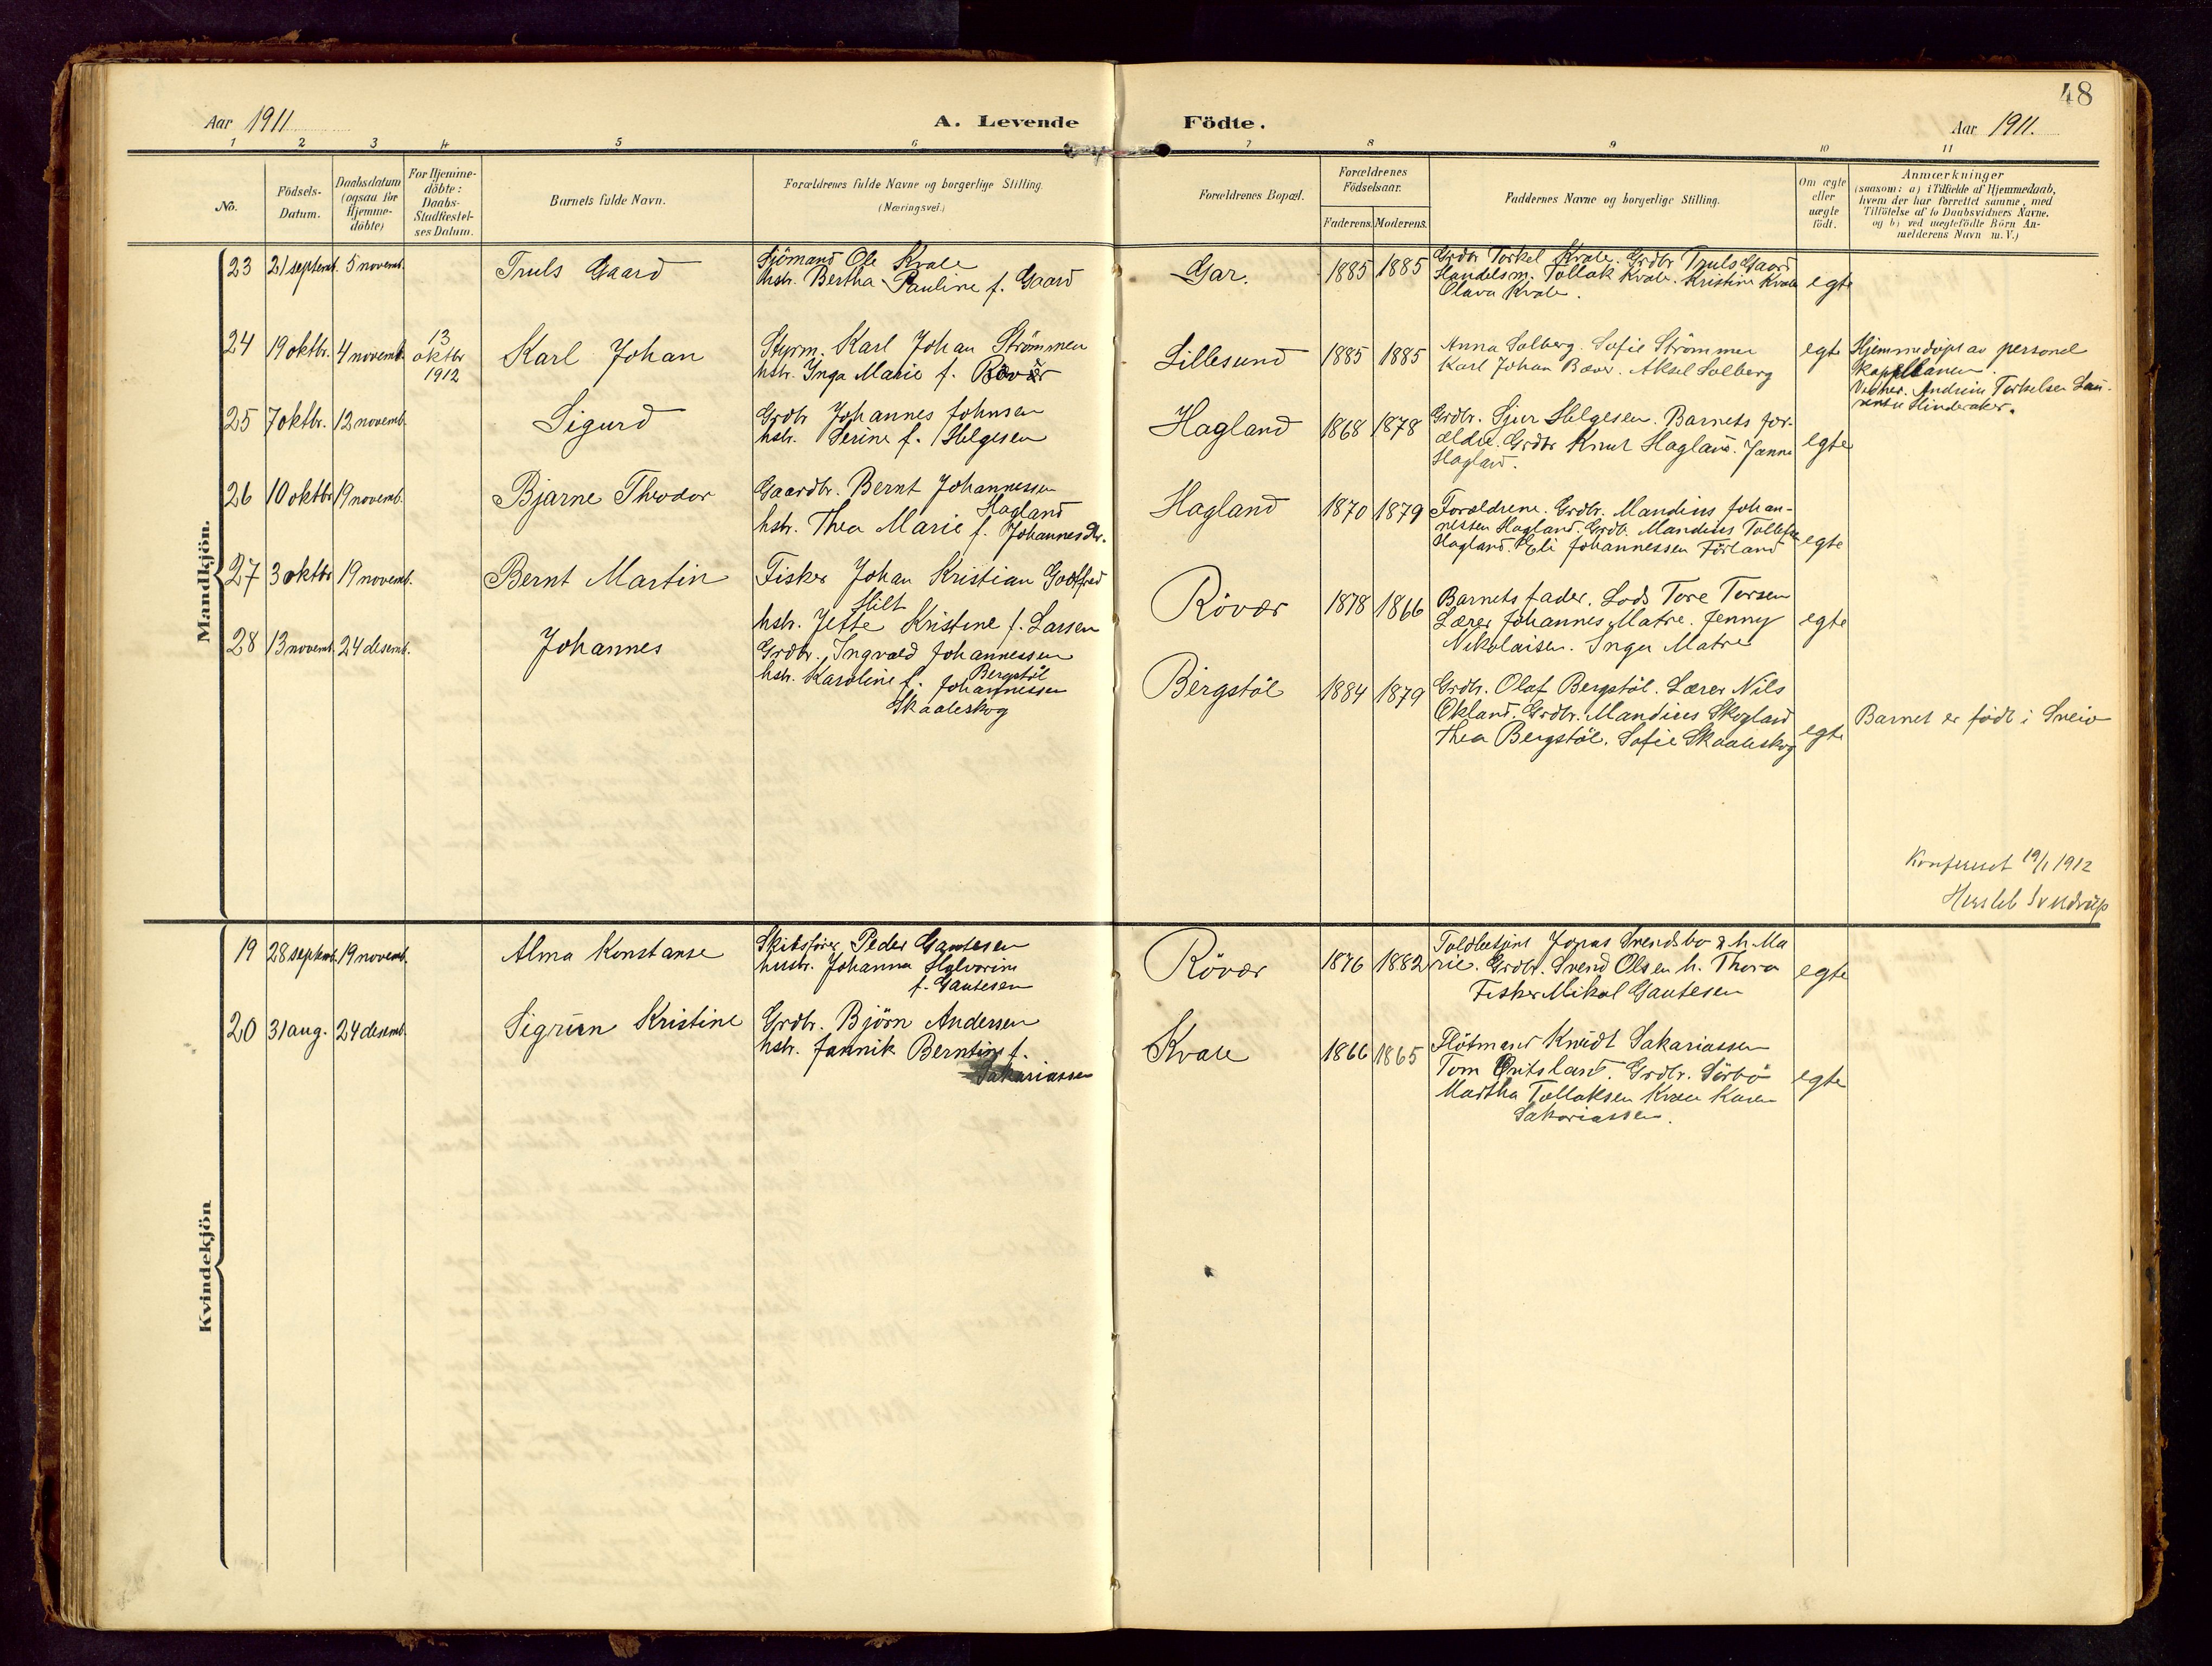 48
Aar 1911
A. Levende Födte.
Aar 1911.
1 2 3 4 5 6 7 8 9 10 11
No.
Födsels-
Datum.
Daabsdatum
(ogsaa for
Hjemme-
döbte)
For Hjemme-
döbte:
Daabs-
Stadfæstel-
ses Datum.
Barnets fulde Navn.
Forældrenes fulde Navne og borgerlige Stilling.
(Næringsvei.)
Forældrenes Bopæl.
Forældrenes
Födselsaar.
Faderens. Moderens.
Faddernes Navne og borgerlige Stilling.
Om ægte
eller
uægte
födt.
Anmærkninger
(saasom: a) i Tilfælde af Hjemmedaab,
hvem der har forrettet samme, med
Tilföielse af to Daabsvidners Navne.
og b) ved uægtefödte Börn An-
melderens Navn m. V.)
Mandkjön.
23 21 septemb. 5 novemb.
Truls Gaard
Sjömand Ole Kvale
hstr. Bertha Pauline f. Gaard
Gar.
1885 1885
Grdbr Torkel Kvale. Grdbr Truls Gaard
Handelsm. Tollak Kvale. Kristine Kvale
Olava Kvale.
egte
24 19 oktbr. 4 novemb.
13
oktbr
1912
Karl Johan
Styrm. Karl Johan Strömmen
hstr. Inga Marie f. Rövær
Lillesund
1885 1885
Anna Solberg. Sofie Strömmen
Karl Johan Bæver. Aksel Solberg
egte
Hjemmedöpt av personel
kapellanen.
Vidner. Andrine Torkelsen Lau-
rense Hinderaker.
25 7 oktbr. 12 novemb.
Sigurd
Grdbr Johannes Johnsen
hstr. Serine f. Helgesen
Hagland
1868 1878
Grdbr. Sjur Helgesen. Barnets for-
ældre. Grdbr Knut Hagland. Janna
Hagland.
egte
26 10 oktbr 19 novemb.
Bjarne Theodor
Gaardbr. Bernt Johannessen
Hagland
hstr. Thea Marie f. Johannesdtr.
Hagland
1870 1879
Forældrene. Grdbr. Mandius Johan-
nessen Hagland. Grdb. Mandius Tollefsen
Hagland. Eli Johannessen Förland
egte
27 3 oktbr 19 novemb.
Bernt Martin
Fisker Johan Kristian Godtfred
Hilt
hstr. Jette Kristine f. Larsen
Rövær
1878 1866
Barnets fader. Lods Tore Torsen
Lærer Johannes Matre. Jenny
Nikolaisen. Inga Matre
egte
28 13 novemb. 24 desemb.
Johannes
Grdbr. Ingvald Johannessen
Bergstöl
hstr. Karoline f. Johannessen
Skaaleskog
Bergstöl
1884 1879
Grdbr. Olaf Bergstöl. Lærer Nils
Ökland. Grdbr. Mandius Skogland
Thea Bergstöl. Sofie Skaaleskog
egte
Barnet er födt i Sveio
Konfereret 19/1 1912
Hersleb Sverdrup
Kvindekjön
19 28 septemb. 19 novemb.
Alma Konstanse
Skibsförer Peder Gautesen
hustr. Johanna Halvorine
f. Gautesen
Rövær
1876 1882
Toldbetjent Jonas Svendsbo & h. Ma
rie. Grdbr. Svend Olsen h. Thora
Fisker Mikal Gautesen
egte
20 31 aug. 24 desemb.
Sigrun Kristine
Grdbr. Björn Andersen
hstr. Jannik Berntine f.
Sakariassen
Kvale
1866 1865
Flötmand Knudt Sakariassen
Tom Gritsland. Grdbr. Sörbö
Martha Tollaksen Kvale Karen
Sakariassen.
egte